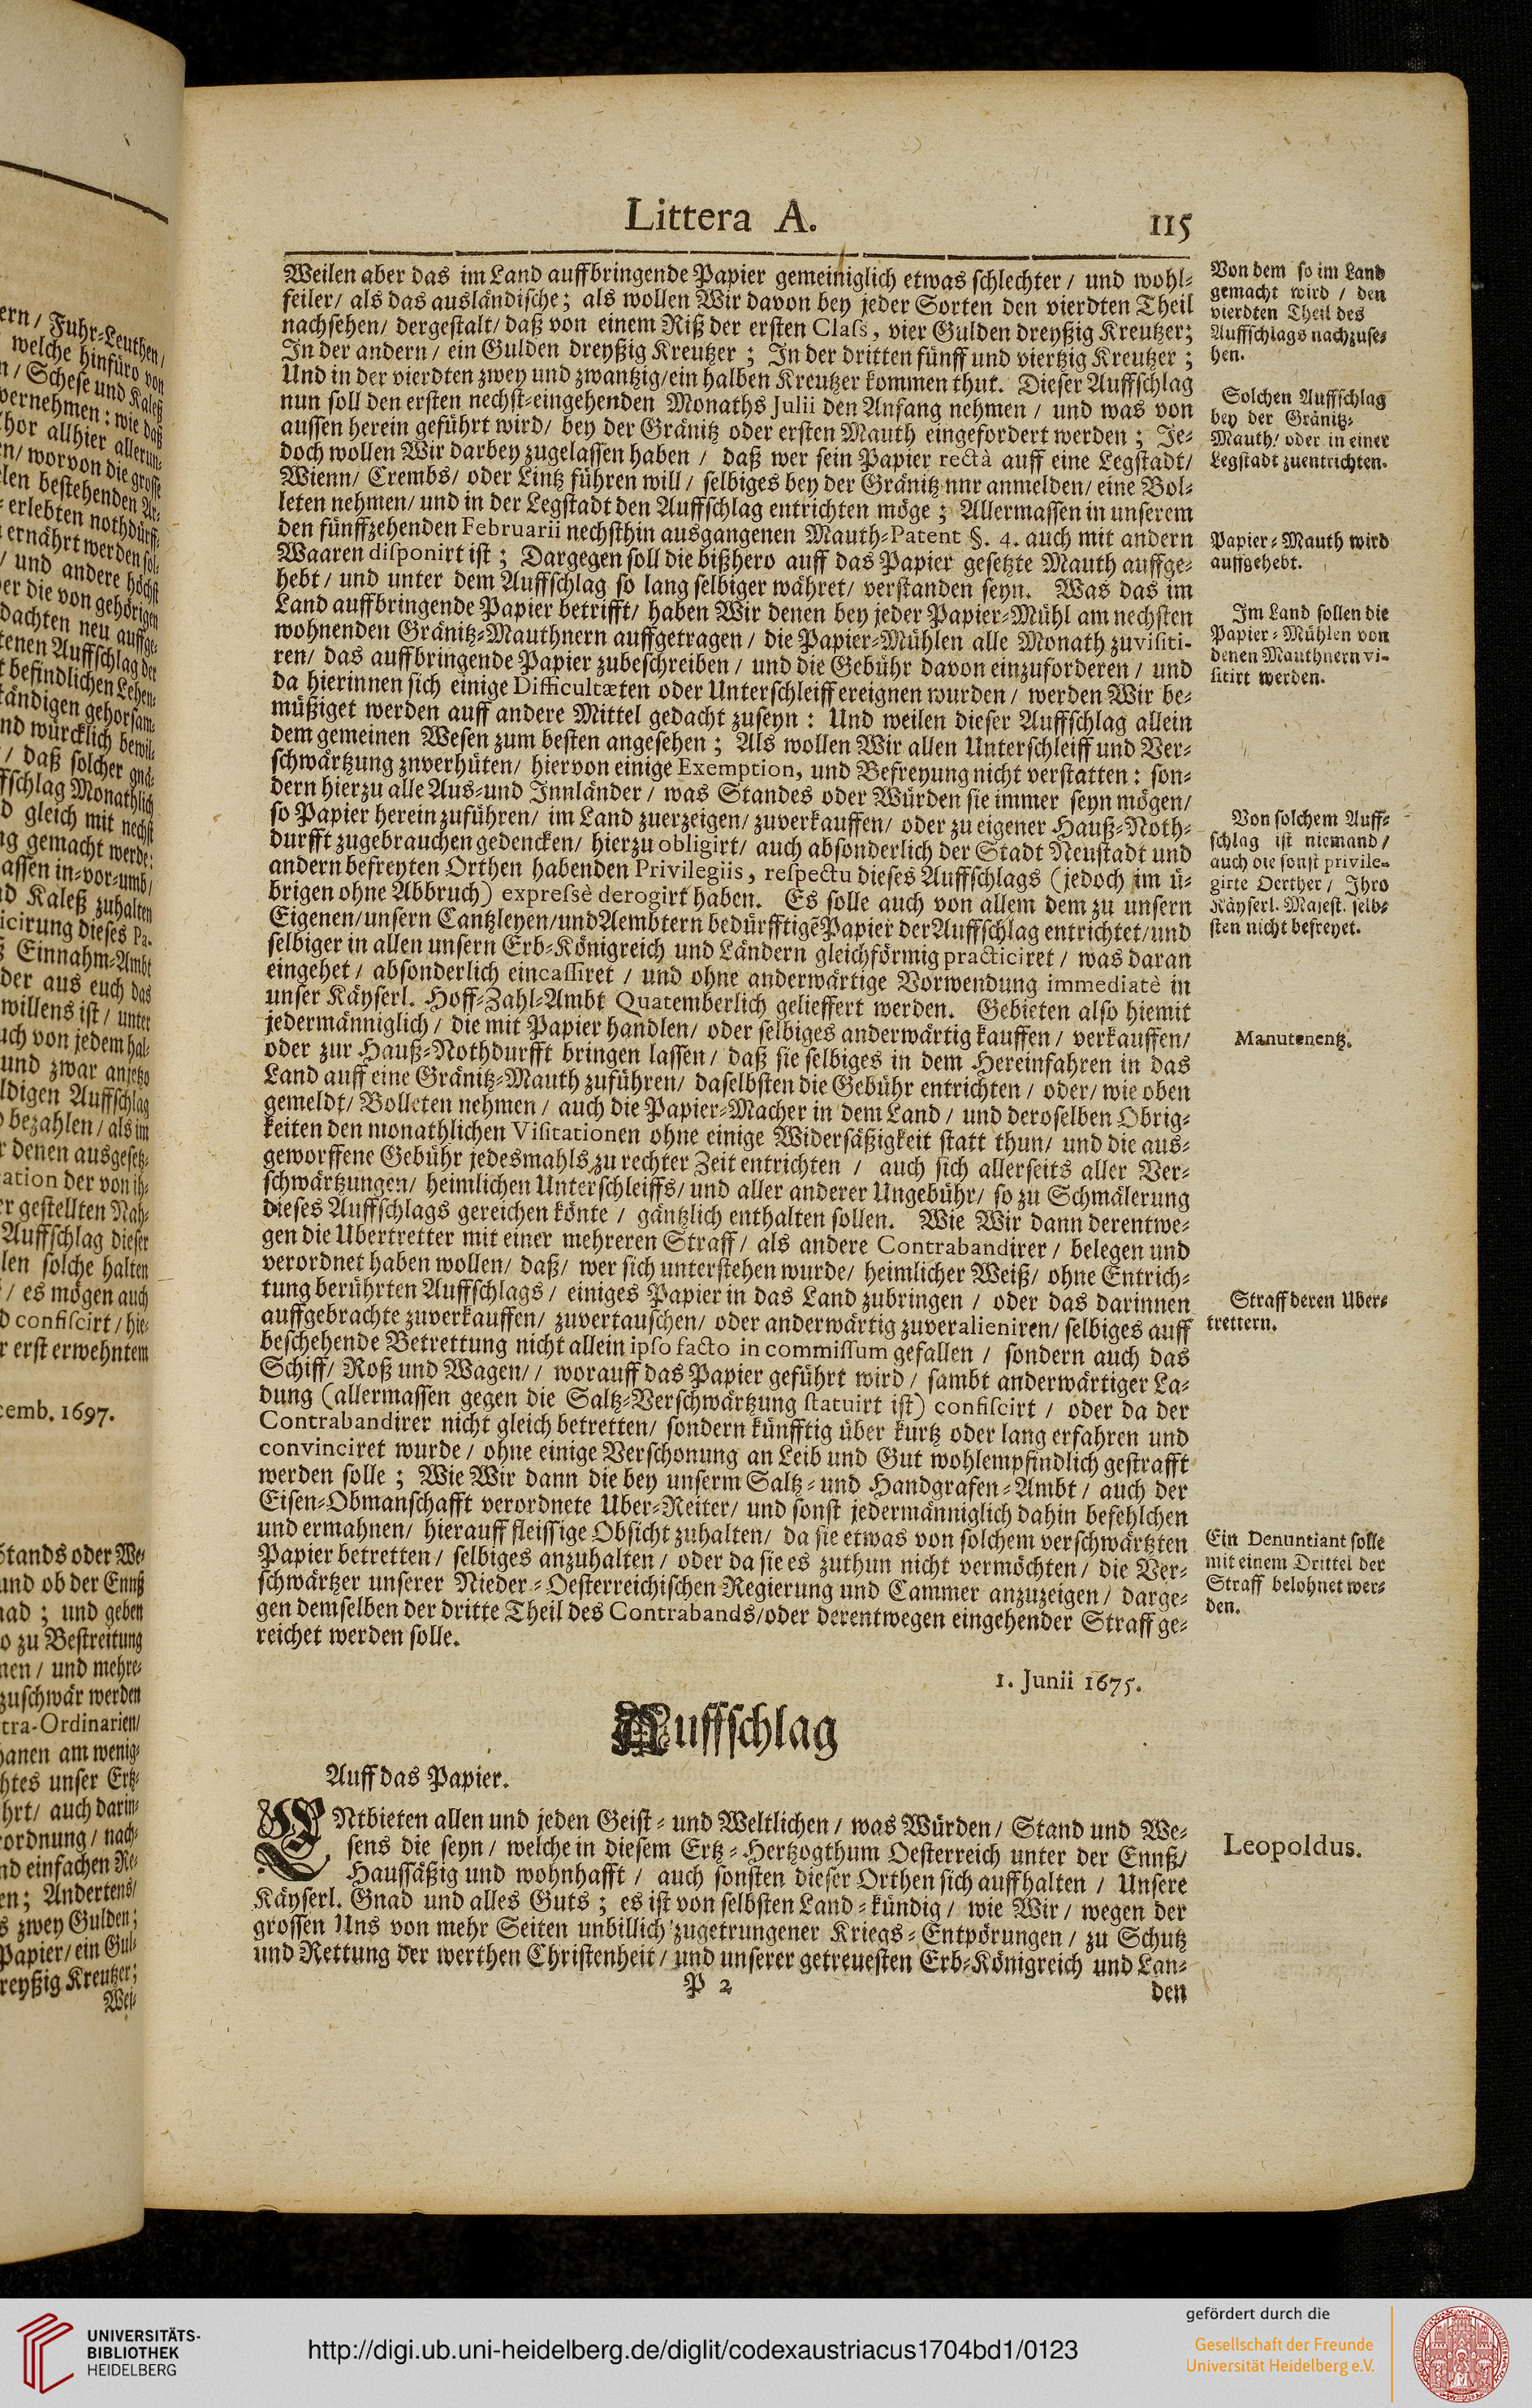 Littera A.
115
Weilen aber das im Land auffbringende Papier gemeiniglich etwas schlechter / und wohl-
feiler/ als das ausländische; als wollen Wir davon bey jeder Sorten den vierdten Theil
nachsehen/ dergestalt/ daß von einem Riß der ersten Class, vier Gulden dreyßig Kreutzer;
In der andern / ein Gulden dreyßig Kreutzer ; In der dritten fünff und viertzig Kreutzer ;
Und in der vierdten zwey und zwantzig/ein halben Kreutzer kommen thut. Dieser Auffschlag
nun soll den ersten nechst-eingehenden Monaths Julii den Anfang nehmen / und was von
aussen herein geführt wird/ bey der Gränitz oder ersten Mauth eingefordert werden ; Je-
doch wollen Wir darbey zugelassen haben / daß wer sein Papier rectà auff eine Legstadt/
Wienn/ Crembs/ oder Lintz führen will / selbiges bey der Gränitz nnr anmelden/ eine Bol-
leten nehmen/ und in der Legstadt den Auffschlag entrichten möge ; Allermassen in unserem
den fünffzehenden Februarii nechsthin ausgangenen Mauth-Patent §. 4. auch mit andern
Waaren disponirt ist ; Dargegen soll die bißhero auff das Papier gesetzte Mauth auffge-
hebt / und unter dem Auffschlag so lang selbiger währet/ verstanden seyn. Was das im
Land auffbringende Papier betrifft/ haben Wir denen bey jeder Papier-Mühl am nechsten
wohnenden Gränitz-Mauthnern auffgetragen / die Papier-Mühlen alle Monath zuvisiti-
ren/ das auffbringende Papier zubeschreiben / und die Gebühr davon einzuforderen / und
da hierinnen sich einige Difficultæten oder Unterschleiff ereignen wurden / werden Wir be-
müßiget werden auff andere Mittel gedacht zuseyn : Und weilen dieser Auffschlag allein
dem gemeinen Wesen zum besten angesehen ; Als wollen Wir allen Unterschleiff und Ver-
schwärtzung znverhüten/ hiervon einige Exemption, und Befreyung nicht verstatten : son-
dern hierzu alle Aus-und Innländer / was Standes oder Würden sie immer seyn mögen/
so Papier herein zuführen/ im Land zuerzeigen/ zuverkauffen/ oder zu eigener Hauß-Noth-
durfft zugebrauchen gedencken/ hierzu obligirt/ auch absonderlich der Stadt Neustadt und
andern befreyten Orthen habenden Privilegiis, respectu dieses Auffschlags (jedoch im ü-
brigen ohne Abbruch) expressè derogirt haben. Es solle auch von allem dem zu unsern
Eigenen/unsern Cantzleyen/und Aembtern bedürfftigē Papier der Auffschlag entrichtet/und
selbiger in allen unsern Erb-Königreich und Ländern gleichförmig practiciret / was daran
eingehet / absonderlich eincassiret / und ohne anderwärtige Vorwendung immediatè in
unser Käyserl. Hoff-Zahl-Ambt Quatemberlich gelieffert werden. Gebieten also hiemit
jedermänniglich / die mit Papier handlen/ oder selbiges anderwärtig kauffen / verkauffen/
oder zur Hauß-Nothdurfft bringen lassen / daß sie selbiges in dem Hereinfahren in das
Land auff eine Gränitz-Mauth zuführen/ daselbsten die Gebühr entrichten / oder/ wie oben
gemeldt/ Bolleten nehmen / auch die Papier-Macher in dem Land / und deroselben Obrig-
keiten den monathlichen Visitationen ohne einige Widersäßigkeit statt thun/ und die aus-
geworffene Gebühr jedesmahls zu rechter Zeit entrichten / auch sich allerseits aller Ver-
schwärtzungen/ heimlichen Unterschleiffs/ und aller anderer Ungebühr/ so zu Schmälerung
dieses Auffschlags gereichen könte / gäntzlich enthalten sollen. Wie Wir dann derentwe-
gen die Ubertretter mit einer mehreren Straff / als andere Contrabandirer / belegen und
verordnet haben wollen/ daß/ wer sich unterstehen wurde/ heimlicher Weiß/ ohne Entrich-
tung berührten Auffschlags / einiges Papier in das Land zubringen / oder das darinnen
auffgebrachte zuverkauffen/ zuvertauschen/ oder anderwärtig zuveralieniren/ selbiges auff
beschehende Betrettung nicht allein ipso facto in commissum gefallen / sondern auch das
Schiff/ Roß und Wagen/ / worauff das Papier geführt wird / sambt anderwärtiger La-
dung (allermassen gegen die Saltz-Verschwärtzung statuirt ist) confiscirt / oder da der
Contrabandirer nicht gleich betretten/ sondern künfftig über kurtz oder lang erfahren und
convinciret wurde / ohne einige Verschonung an Leib und Gut wohlempfindlich gestrafft
werden solle ; Wie Wir dann die bey unserm Saltz - und Handgrafen - Ambt / auch der
Eisen-Obmanschafft verordnete Uber-Reiter/ und sonst jedermänniglich dahin befehlchen
und ermahnen/ hierauff fleissige Obsicht zuhalten/ da sie etwas von solchem verschwärtzten
Papier betretten / selbiges anzuhalten / oder da sie es zuthun nicht vermöchten / die Ver-
schwärtzer unserer Nieder-Oesterreichischen Regierung und Cammer anzuzeigen / darge-
gen demselben der dritte Theil des Contrabands/oder derentwegen eingehender Straff ge-
reichet werden solle.
1. Junii 1675.
Auffschlag
Auff das Papier.
ENtbieten allen und jeden Geist- und Weltlichen / was Würden / Stand und We-
sens die seyn / welche in diesem Ertz-Hertzogthum Oesterreich unter der Ennß/
Haussäßig und wohnhafft / auch sonsten dieser Orthen sich auffhalten / Unsere
Käyserl. Gnad und alles Guts ; es ist von selbsten Land-kündig / wie Wir / wegen der
grossen Uns von mehr Seiten unbillich zugetrungener Kriegs-Entpörungen / zu Schutz
und Rettung der werthen Christenheit / und unserer getreuesten Erb-Königreich und Lan-
P 2
den
Von dem so im Land
gemacht wird / den
vierdten Theil des
Auffschlags nachzuse-
hen.
Solchen Auffschlag
bey der Gränitz-
Mauth/ oder in einer
Legstadt zuentrichten.
Papier-Mauth wird
auffgehebt.
Im Land sollen die
Papier-Mühlen von
denen Mauthnern vi-
sitirt werden.
Von solchem Auff-
schlag ist niemand /
auch die sonst privile-
girte Oerther / Ihro
Käyserl. Majest. selb-
sten nicht befreyet.
Manutenentz.
Straff deren Uber-
trettern.
Ein Denuntiant solle
mit einem Drittel der
Straff belohnet wer-
den.
Leopoldus.
ern / Fuhr-Leuthen/
welche hinfüro von
n / Schese und Kaleß
vernehmen : wie daß
hor allhier allerun-
n/ worvon die grosse
len bestehenden Ar-
erlebten nothdürff-
ernährt werden sol-
/ und andere höchst
er die von gehörigen
dachten neu auffge-
tenen Auffschlag der
t befindlichen Lehen-
tändigen gehorsam-
nd würcklich bewil-
/ daß solcher gnä-
ffschlag Monathlich
d gleich mit nechst
ig gemacht werde:
assen in-vor-umb/
d Kaleß zuhalten
icirung dieses Pa-
ß Einnahm-Ambt
der aus euch das
willens ist / unter
uch von jedem hal-
und zwar anjetzo
ldigen Auffschlag
bezahlen / als im
r denen ausgesetz-
ation der von ih-
er gestellten Nah-
Auffschlag dieser
len solche halten
/ es mögen auch
d confiscirt / hie-
r erst erwehntem
cemb. 1697.
Stands oder We-
und ob der Ennß
nad ; und geben
o zu Bestreitung
nen / und mehre-
zuschwär werden
tra-Ordinarien/
hanen am wenig-
htes unser Ertz-
hrt/ auch darin-
ordnung / nach-
nd einfachen Re-
en; Andertens/
s zwey Gulden;
Papier/ ein Gul-
reyßig Kreutzer;
Wei-
UNIVERSITÄTS-
BIBLIOTHEK
HEIDELBERG
http://digi.ub.uni-heidelberg.de/diglit/codexaustriacus1704bd1/0123
gefördert durch die
Gesellschaft der Freunde
Universität Heidelberg e.V.